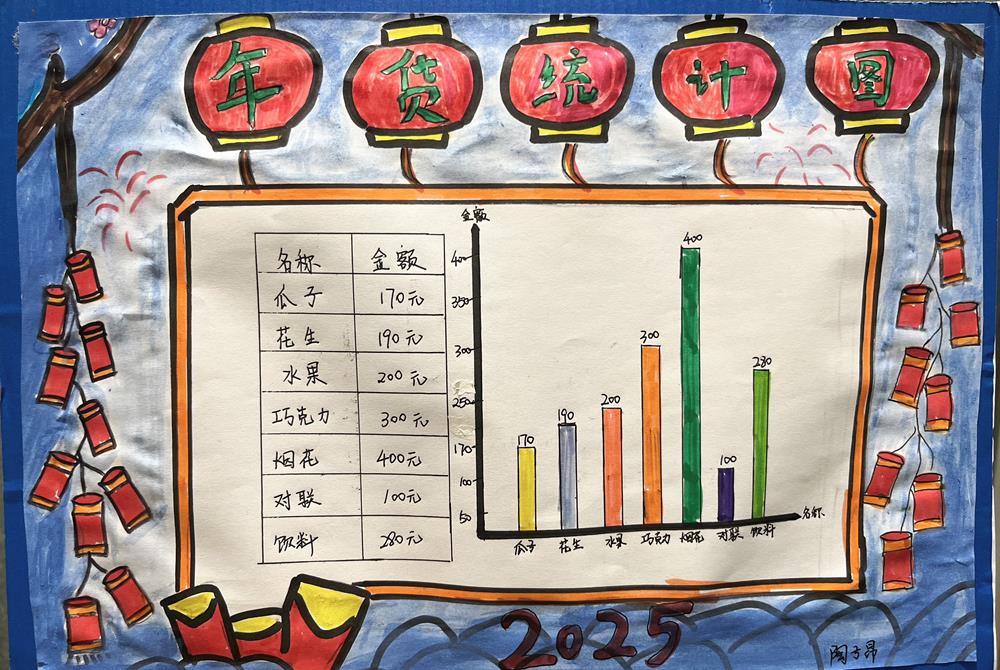 年货统计图
名称 金额
瓜子 170元
花生 190元
水果 200元
巧克力 300元
烟花 400元
对联 100元
饮料 280元
金额
400
350
300
250
170
100
50
170
190
200
300
400
100
280
瓜子 花生 水果 巧克力 烟花 对联 饮料
名称
2025
陶子昂